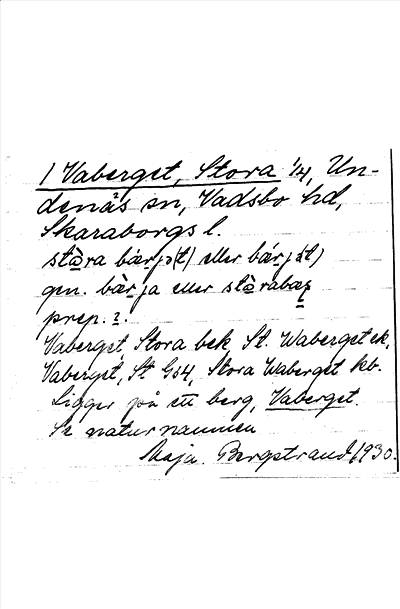 / Vaberget, Stora 1/4, Un-
denäs sn, Vadsbo hd,
Skaraborgs l.
stàra bærjə(t) eller bærj(t)
gen. bærja eller stàrabær
prep. ?.
Vaberget, Stora bek St. Waberget ek,
Vaberget, St Gs4, Stora Waberget kb.
Ligger på ett berg, Vaberget.
Se naturnamnen
Maja Bergstrand 1930.